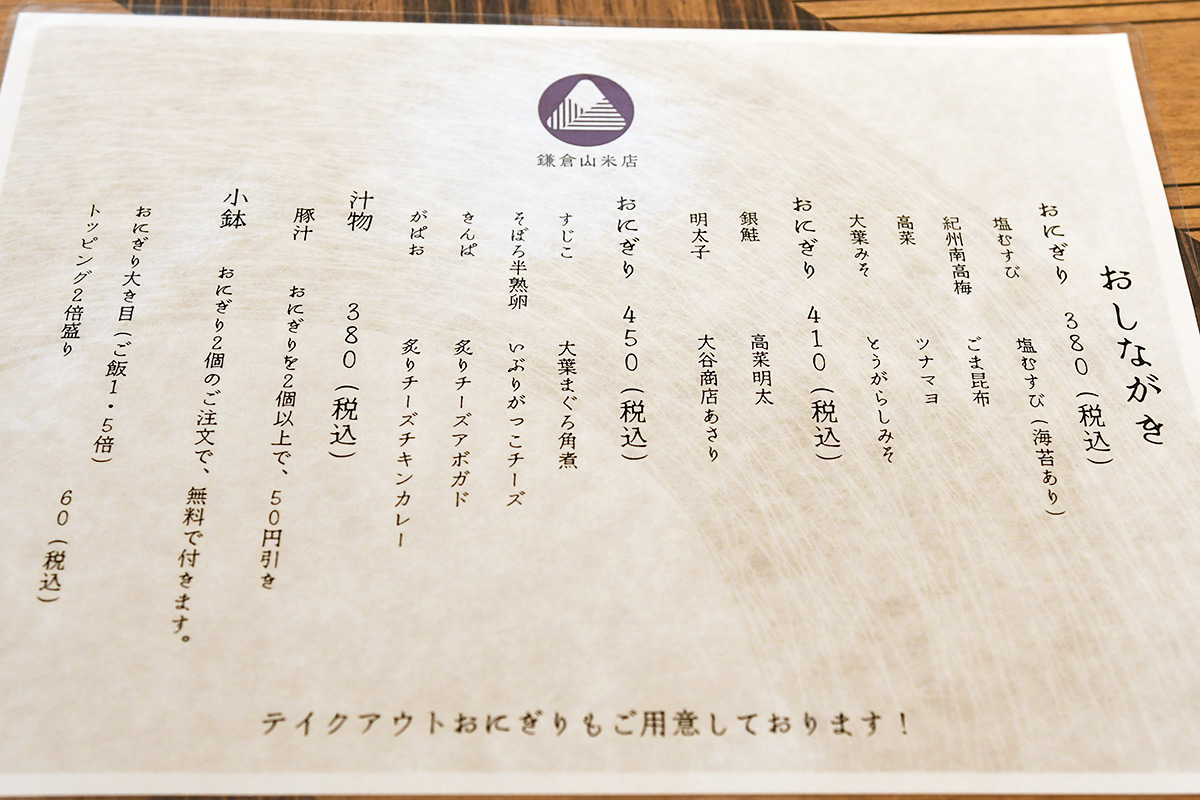 鎌倉山米店
おしながき
おにぎり 380(税込)
塩むすび 塩むすび(海苔あり)
紀州南高梅 ごま昆布
高菜 ツナマヨ
大葉みそ とうがらしみそ
おにぎり 410(税込)
銀鮭 高菜明太
明太子 大谷商店あさり
おにぎり 450(税込)
すじこ 大葉まぐろ角煮
そぼろ半熟卵 いぶりがっこチーズ
きんぱ 炙りチーズアボガド
がぱお 炙りチーズチキンカレー
汁物 380(税込)
豚汁 おにぎりを2個以上で、50円引き
小鉢 おにぎり2個のご注文で、無料で付きます。
おにぎり大き目(ご飯1・5倍)
トッピング2倍盛り 60(税込)
テイクアウトおにぎりもご用意しております!